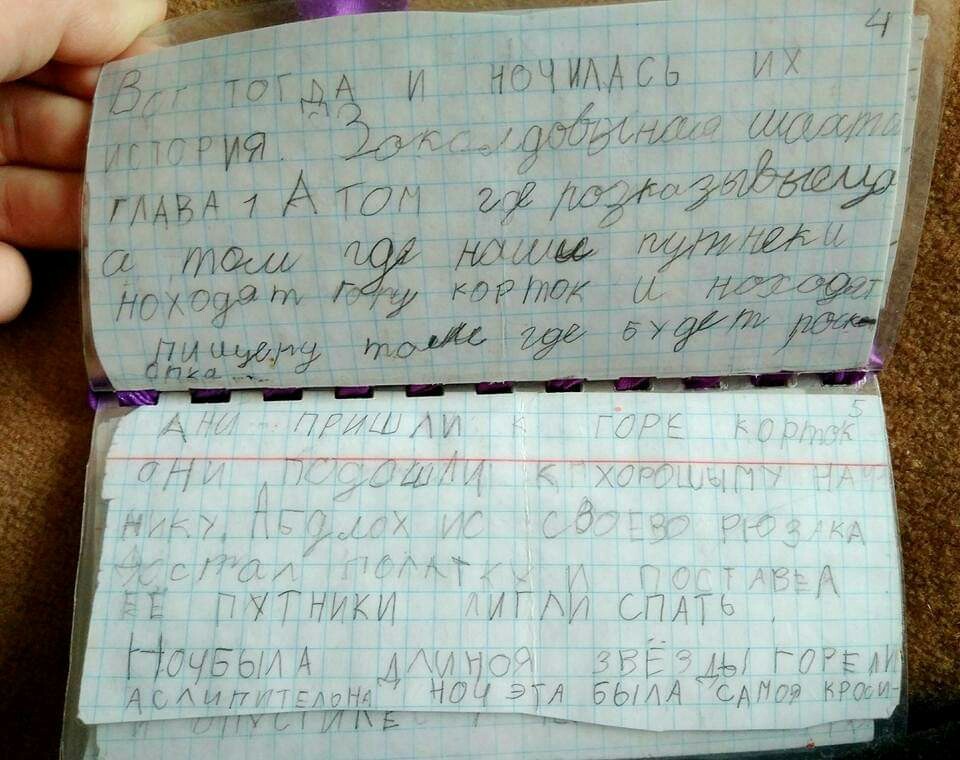 4
Вот тогда и ночилась их
история. Заколдовыная шахта
глава 1 А том где розказываеца
а том где наши путнеки
ноходят гору корток и ноходят
пищеру там где будет роск-
опка...
5
Ани пришли к горе корток
они подошли к хорошыму на-
нику. Абдлох ис своево рюзака
достал полатку и поставел
её путники лигли спать
Ночбыла длиноя звёзды горели
аслипительна ноч эта была самоя кроси-
и опустилес